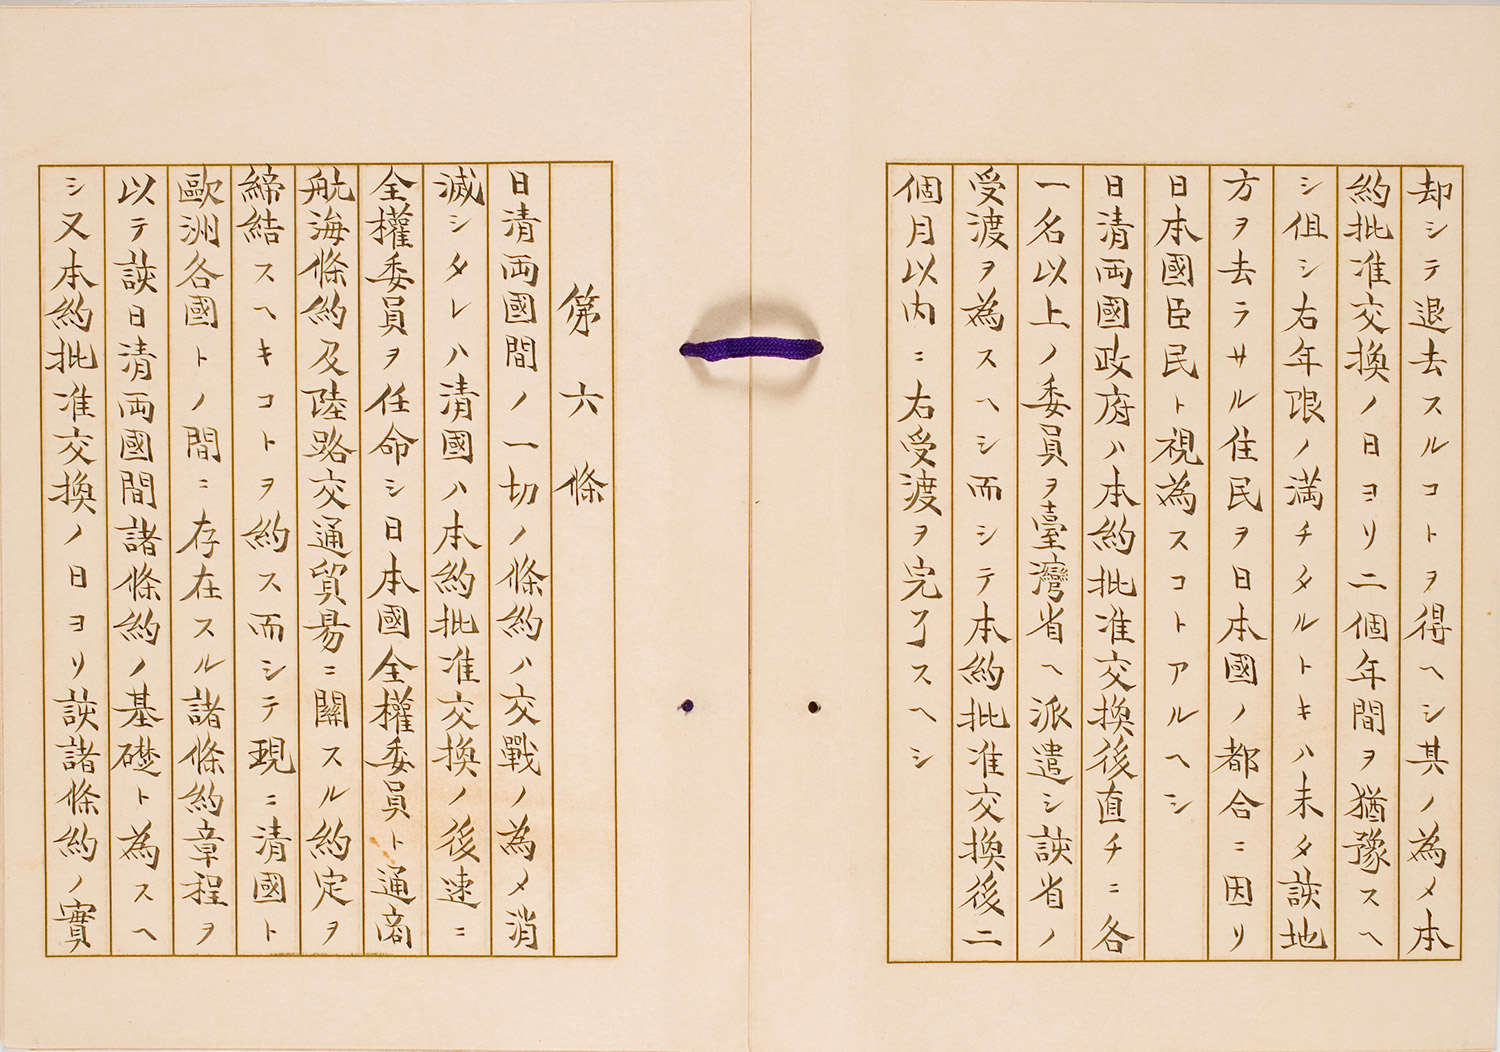 却シテ退去スルコトヲ得ヘシ其ノ為メ本
約批准交換ノ日ヨリ二個年間ヲ猶豫スヘ
シ但シ右年限ノ満チタルトキハ未タ該地
方ヲ去ラサル住民ヲ日本國ノ都合ニ因リ
日本國臣民ト視為スコトアルヘシ
日清両國政府ハ本約批准交換後直チニ各
一名以上ノ委員ヲ臺灣省ヘ派遣シ該省ノ
受渡ヲ為スヘシ而シテ本約批准交換後二
個月以内ニ右受渡ヲ完了スヘシ
第六條
日清両國間ノ一切ノ條約ハ交戰ノ為メ消
滅シタレハ清國ハ本約批准交換ノ後速ニ
全權委員ヲ任命シ日本國全權委員ト通商
航海條約及陸路交通貿易ニ關スル約定ヲ
締結スヘキコトヲ約ス而シテ現ニ清國ト
歐洲各國トノ間ニ存在スル諸條約章程ヲ
以テ該日清両國間諸條約ノ基礎ト為スヘ
シ又本約批准交換ノ日ヨリ該諸條約ノ實